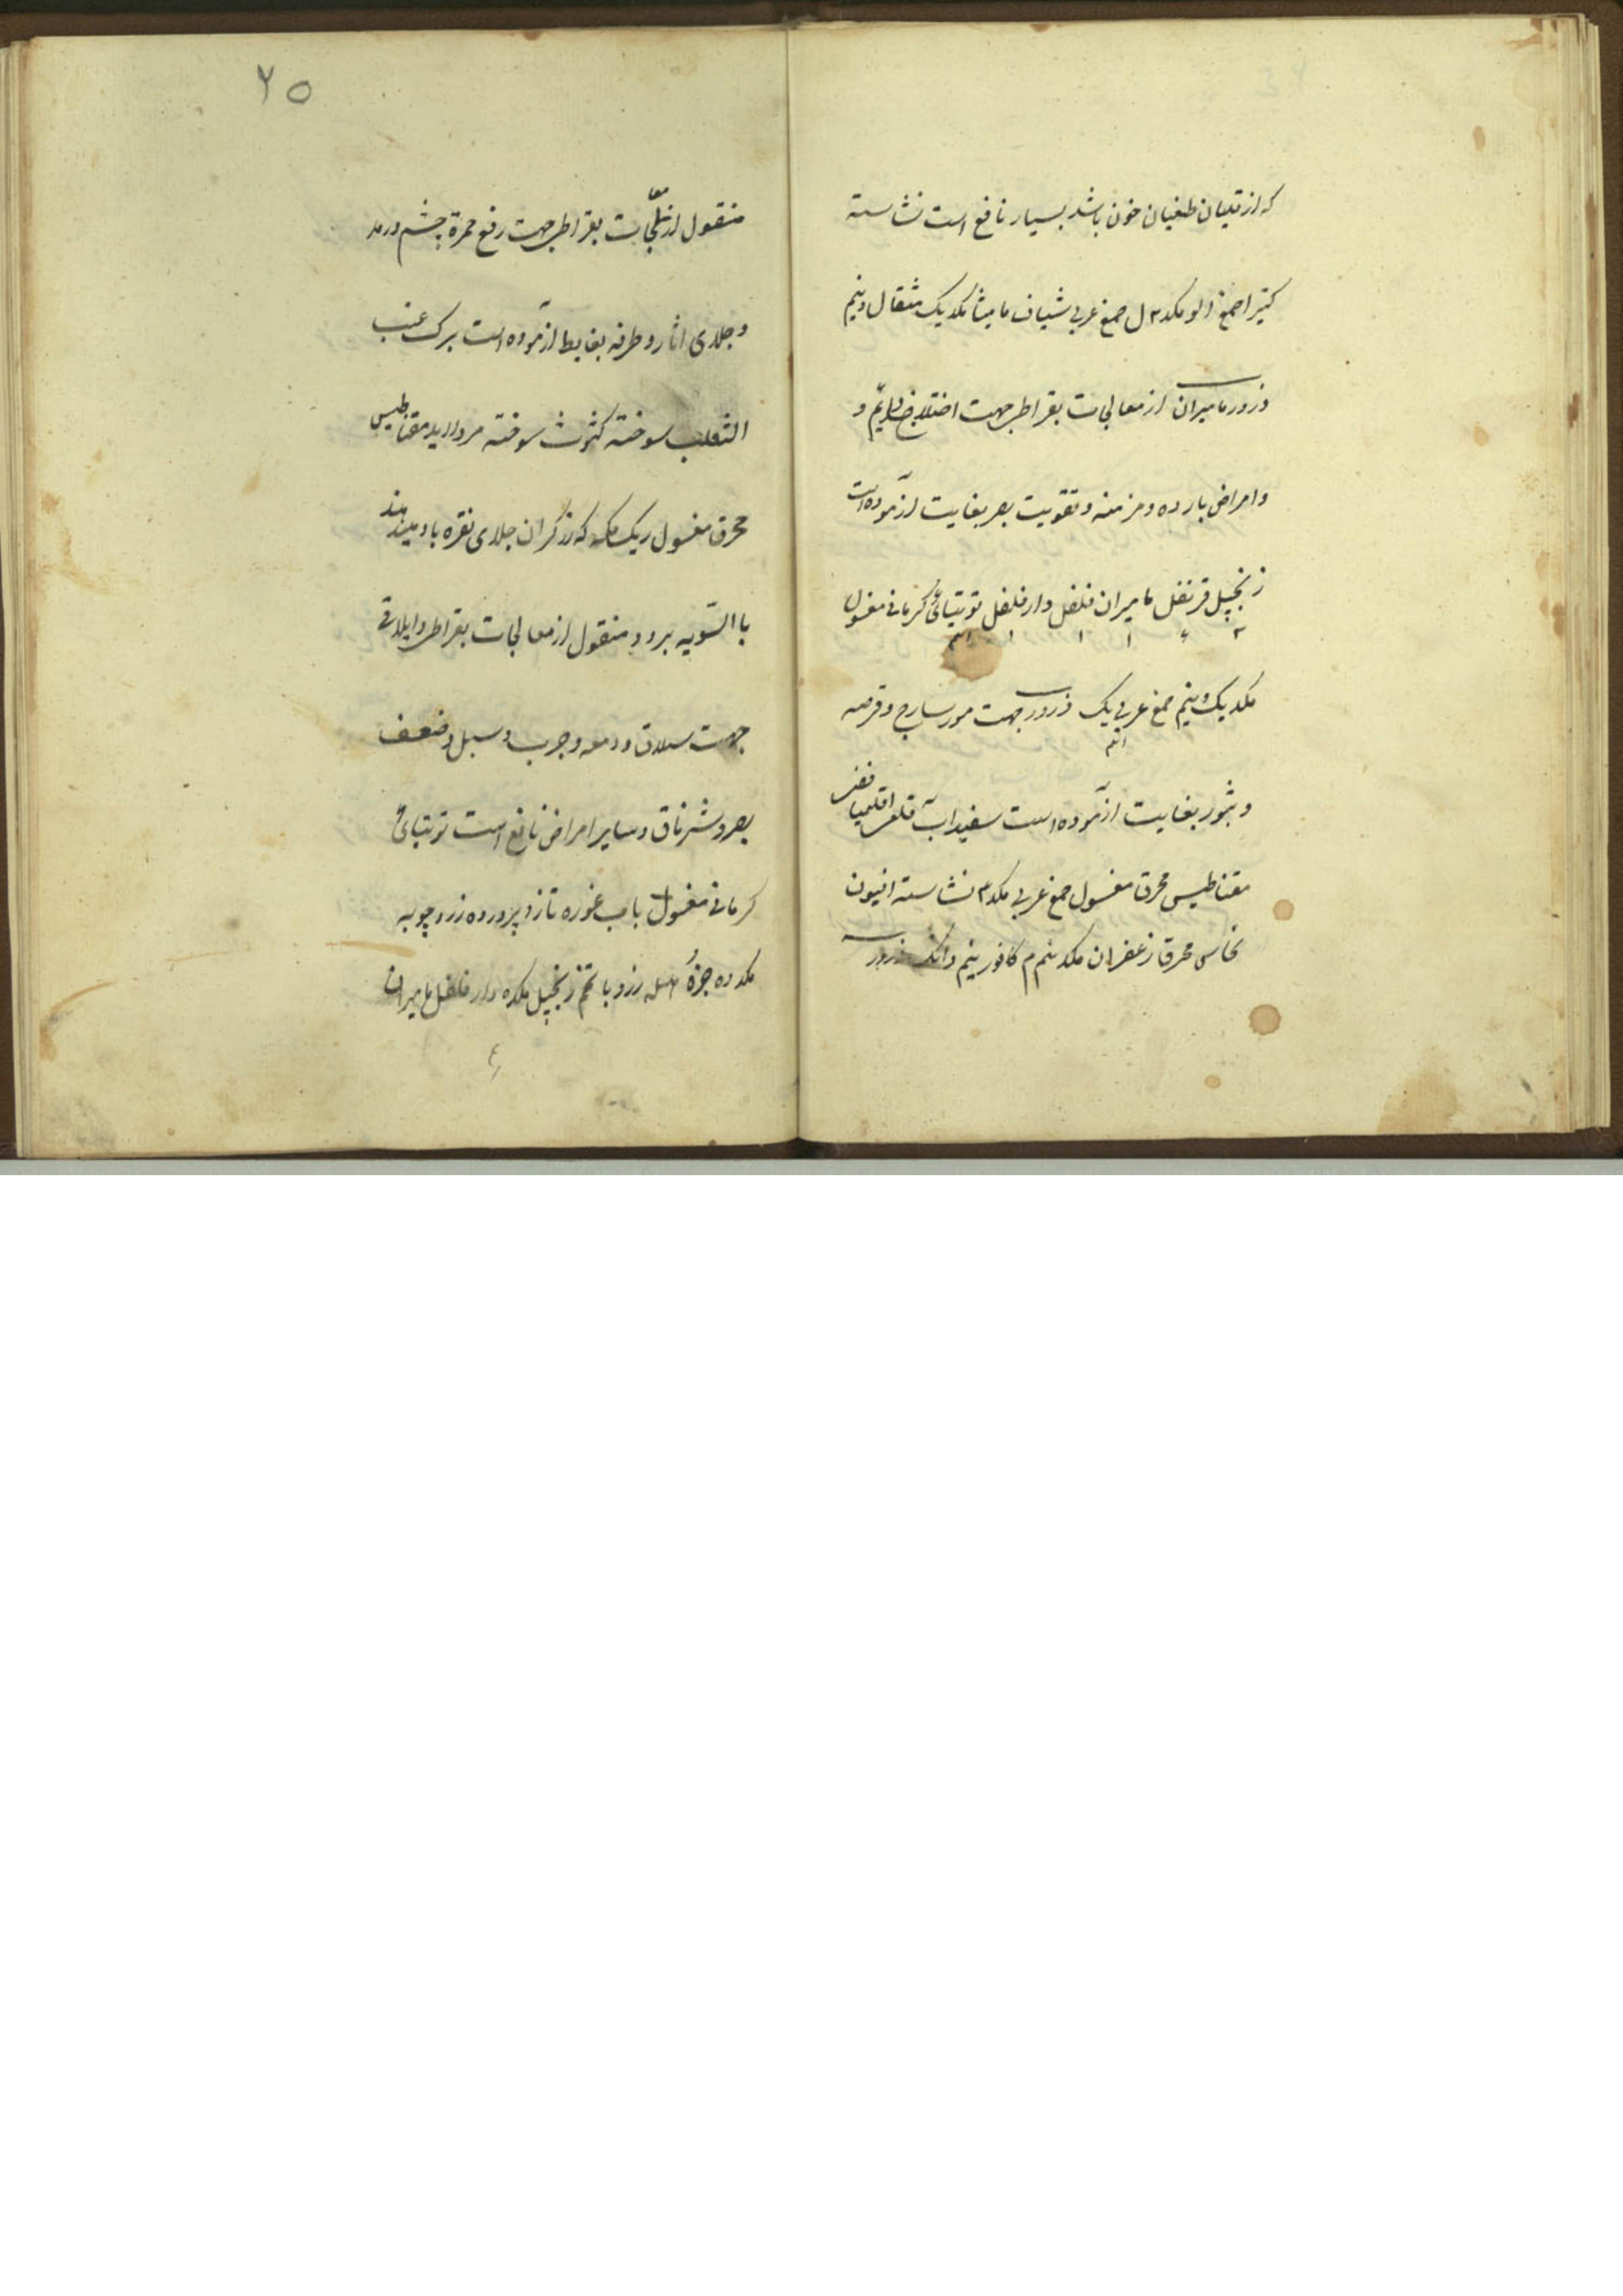 که از قلیان طغیان خون باشد بسیار نافع است نشاسته
کتیرا صمغ الو مکد ۲ ل صمغ عربی شیاف مامیثا مکد یک مثقال و نیم
ذرور مامیران از معالجات بقراط جهت اختلاج دایم و
و امراض بارده و مزمنه و تقویت بصر بغایت ازموده است
زنجبیل قرنفل مامیران فلفل دارفلفل توتیائی کرمانی مغسول
مکد یک و نیم صمغ عربی یک ذرور جهت مورسارج و قرحه
و بثور بغایت ازموده است سفیداب قلعی اقلیمیا
مقناطیس محرق مغسول صمغ عربی مکد ۳ نشاسته افیون
نحاس محرق زعفران مکد نیم م کافور نیم دانک ذرور
۲۵
منقول از معالجات بقراط جهت رفع حمرة چشم و رمد
و جلای اثار و طرفه بغایط ازموده است برک عنب
الثعلب سوخته کثوث سوخته مروارید مقناطیس
محرق مغسول ریک مکه که زرکران جلای نقره باو میدهند
باالتسویه برود منقول از معالجات بقراط و ایلاقی
جهت سلاق و دمعه و جرب و سبل و ضعف
بصر و شرناق و سایر امراض نافع است توتیائی
کرمانی مغسول باب غوره تازه پرورده زردچوبه
مکد ده جزؤ هلیله زرد با تخم زنجبیل مکد ه دار فلفل مامیران